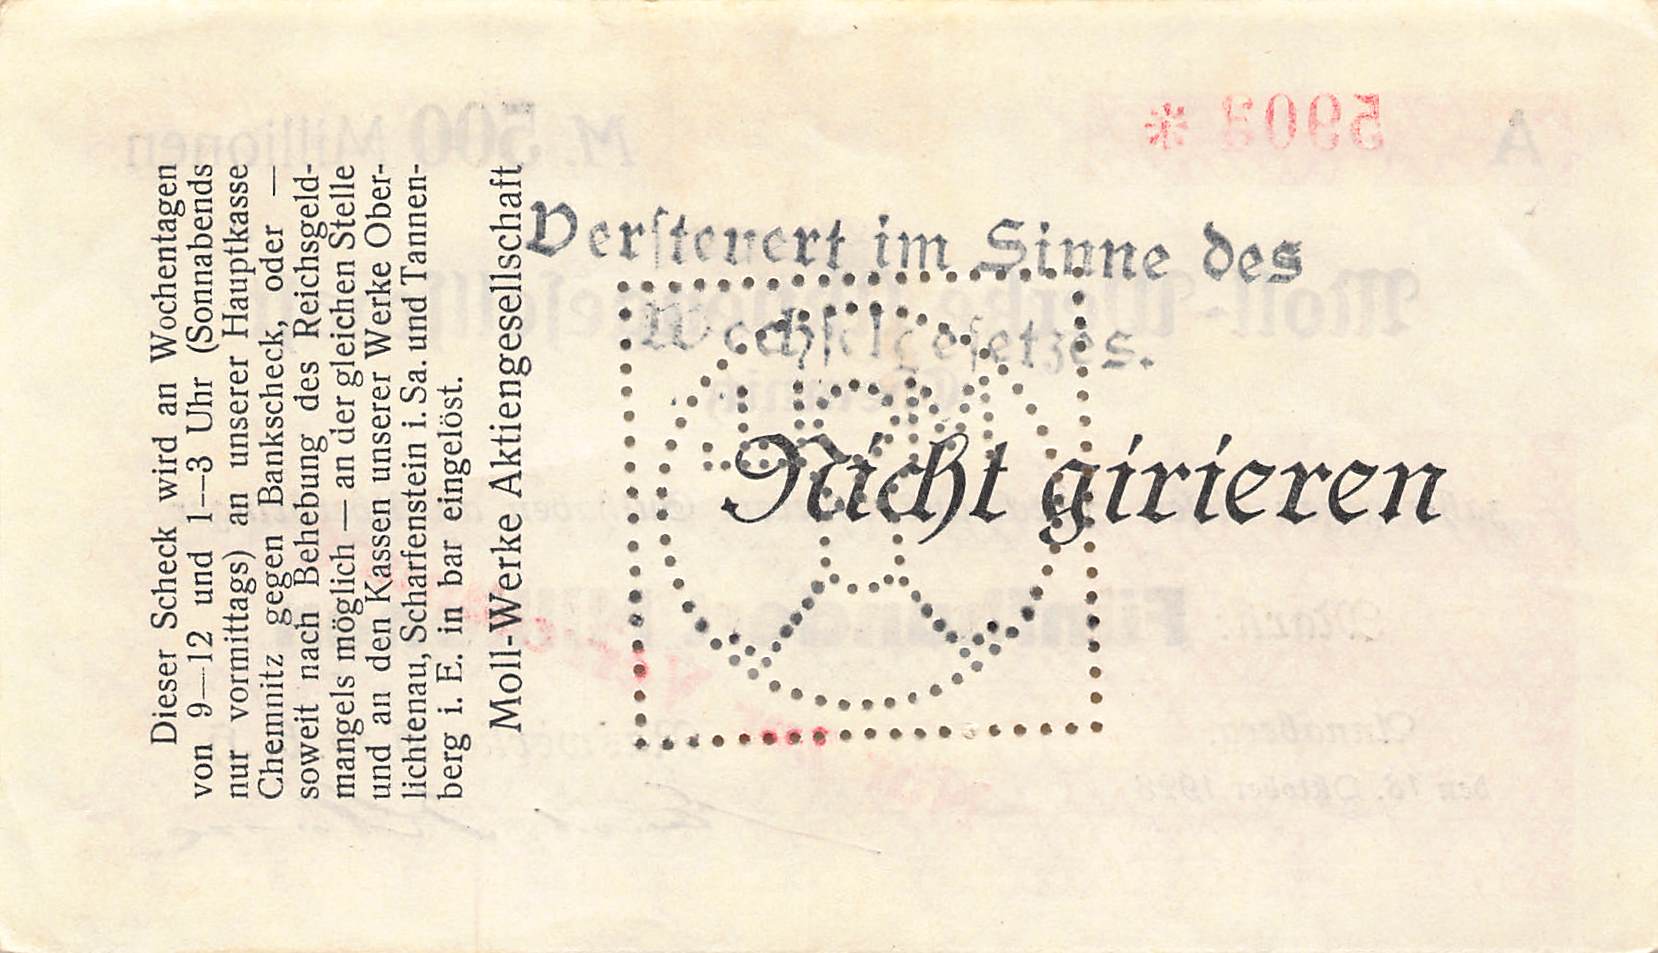 Dieser Scheck wird an Wochentagen
von 9—12 und 1—3 Uhr (Sonnabends
nur vormittags) an unserer Hauptkasse
Chemnitz gegen Bankscheck, oder —
soweit nach Behebung des Reichsgeld-
mangels möglich — an der gleichen Stelle
und an den Kassen unserer Werke Ober-
lichtenau, Scharfenstein i. Sa. und Tannen-
berg i. E. in bar eingelöst.
Moll-Werke Aktiengesellschaft
Versteuert im Sinne des
Wechselgesetzes.
Nicht girieren
M. 500 Millionen
A